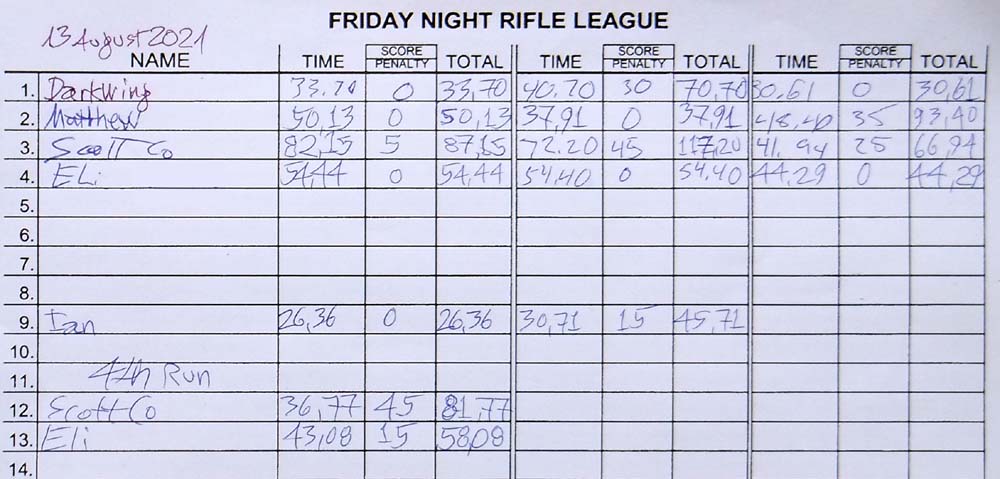 FRIDAY NIGHT RIFLE LEAGUE
13 August 2021
NAME TIME SCORE PENALTY TOTAL TIME SCORE PENALTY TOTAL TIME SCORE PENALTY TOTAL
1. Darkwing 33.70 0 33,70 40.70 30 70,70 30.61 0 30,61
2. Matthew 50,13 0 50,13 37,91 0 37,91 48,40 35 93,40
3. Scott Co 82,15 5 87,15 72.20 45 117,20 41.94 25 66,94
4. ELi 54,44 0 54,44 54,40 0 54,40 44,29 0 44,29
5.
6.
7.
8.
9. Ian 26,36 0 26,36 30,71 15 45,71
10.
11. 4th Run
12. Scott Co 36,77 45 81,77
13. Eli 43,08 15 58,08
14.